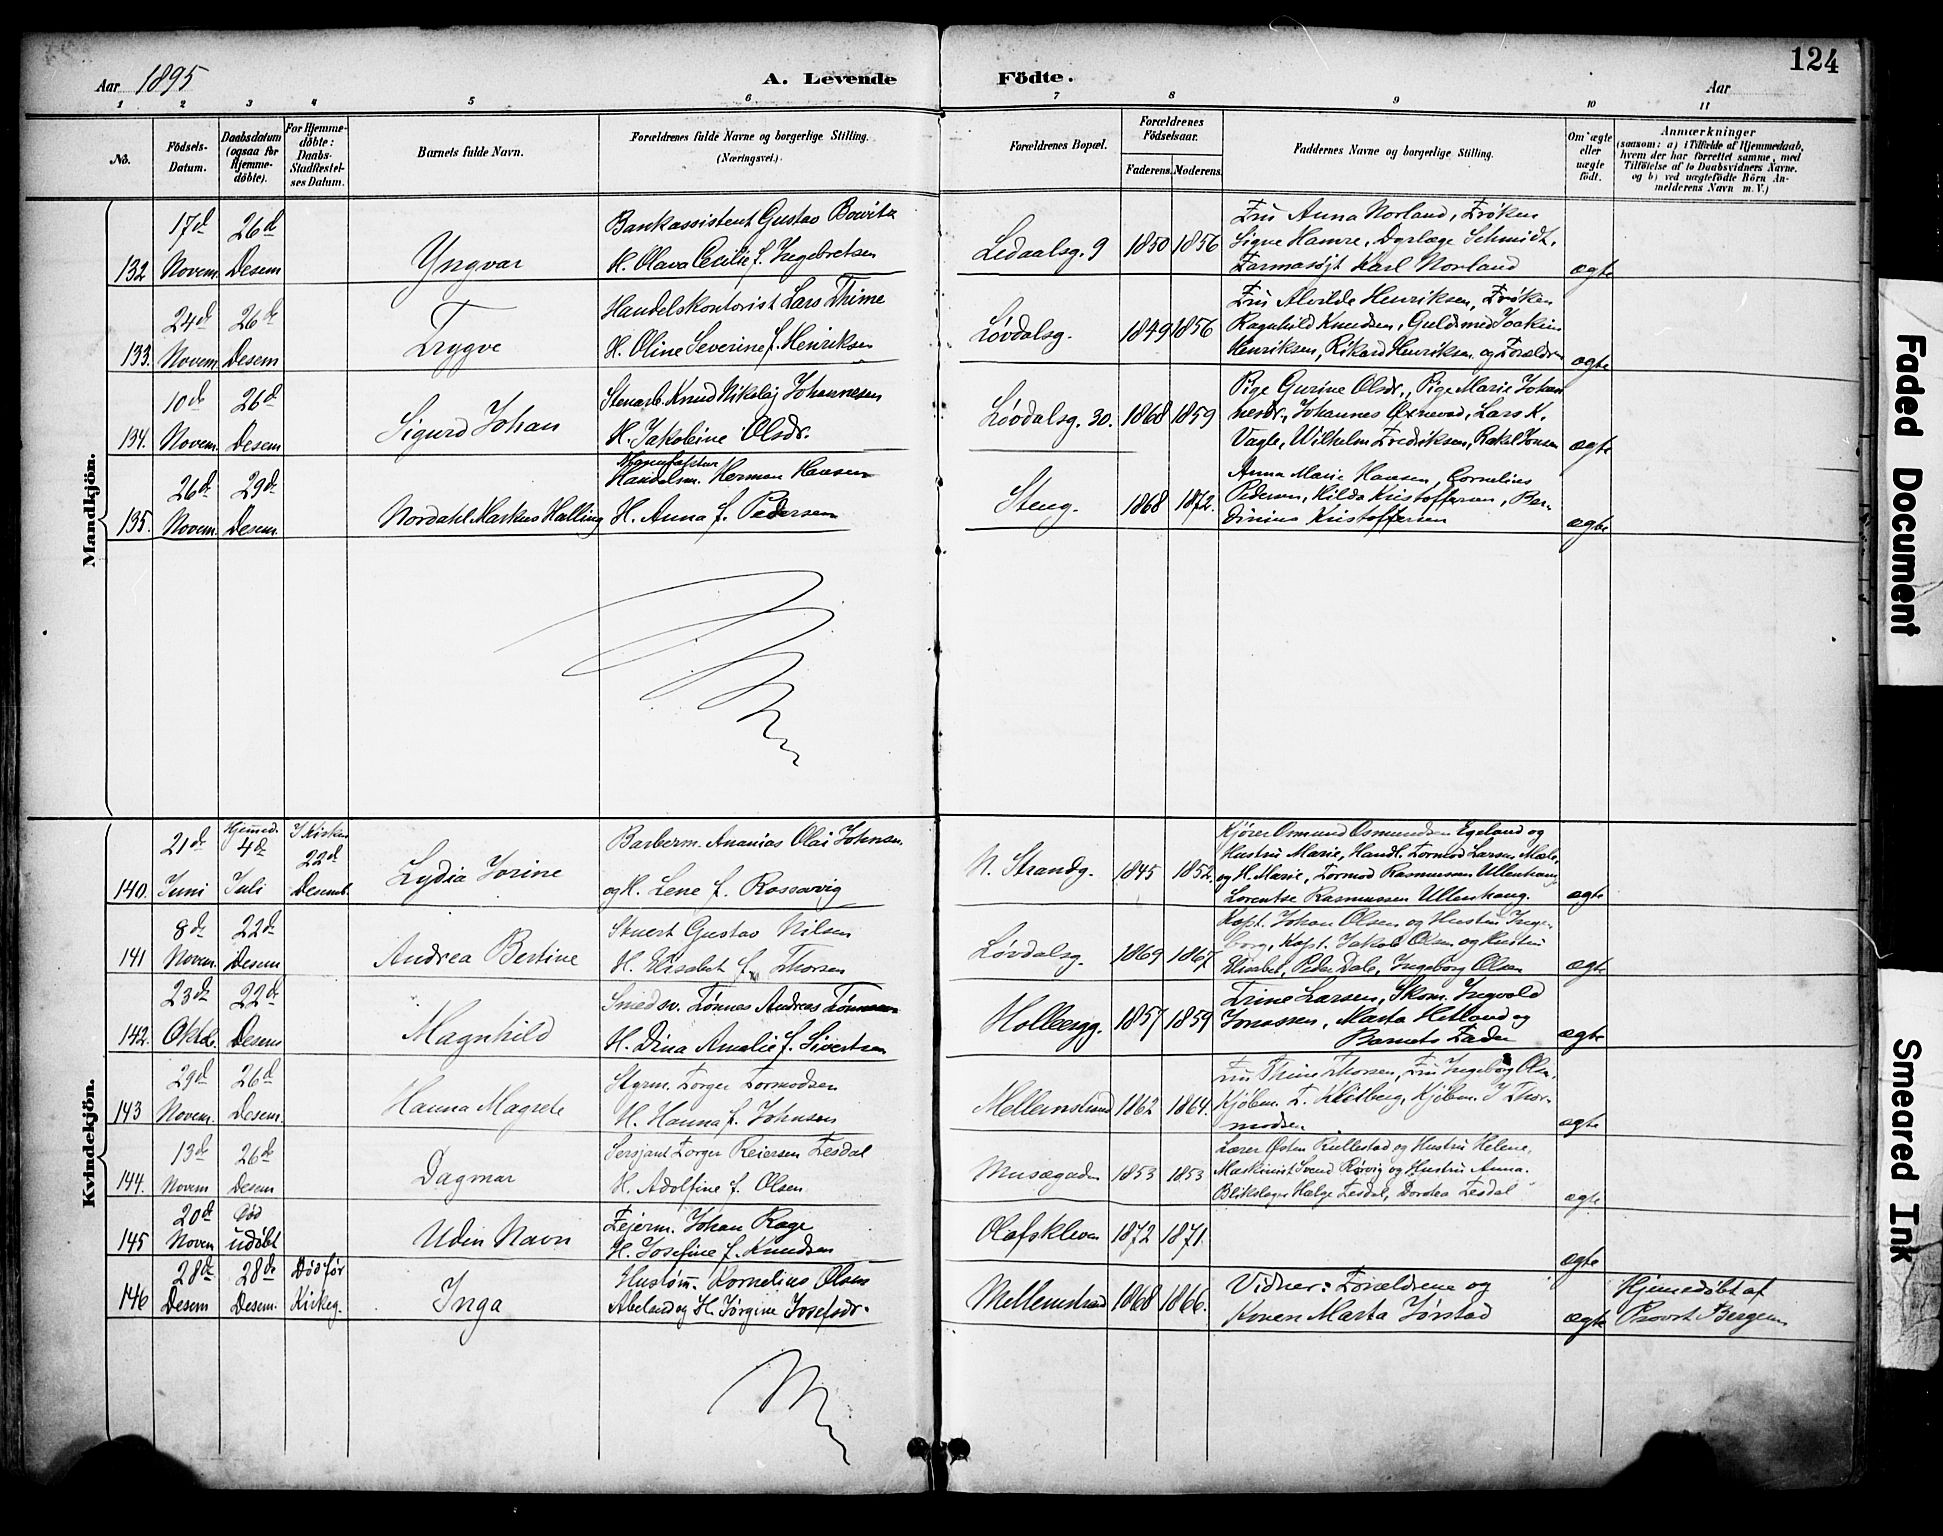 124
Aar 1895
A. Levende Födte.
Aar
1 2 3 4 5 6 7 8 9 10 11
No.
Födsels-Datum.
Daabsdatum (ogsaa for Hjemme-döbte).
For Hjemme-döbte: Daabs-Stadfæstel-ses Datum.
Barnets fulde Navn.
Forældrenes fulde Navne og borgerlige Stilling. (Næringsvei.)
Forældrenes Bopæl.
Forældrenes Födselsaar.
Faderens. Moderens.
Faddernes Navne og borgerlige Stilling.
Om ægte eller uægte födt.
Anmærkninger
(saasom: a) i Tilfælde af Hjemmedaab,
hvem der har forrettet samme, med
Tilföielse af to Daabsvidners Navne.
og b) ved uægtefödte Börn An-
melderens Navn m. V.)
Mandkjön.
132 17d Novem. 26d Desem Yngvar
Bankassistent Gustav Bowitz
H. Olava Cecilie f. Ingebretsen
Ledaalsg. 9 1850 1856
Fru Anna Norland, Frøken
Signe Hamre, Dyrlæge Schmidt,
Farmasøjt Karl Norland
ægte
133. 24d Novem. 26d Desem Trygve
Handelskontorist Lars Thime
H. Oline Severine f. Henriksen
Løvdalsg. 1849 1856
Fru Alvilde Henriksen, Frøken
Ragnhild Knudsen, Guldsmed Joakim
Henriksen, Rikard Henriksen og Forældre
ægte
134. 10d Novem. 26d Desem Sigurd Johan
Stenarb. Knud Nikolaj Johannesen
H. Jakobine Olsdr.
Løvdalsg. 30. 1868 1859
Pige Gurine Olsdr., Pige Marie Johan
nesdr., Johannes Oxnevad, Lars K.
Vagle, Wilhelm Fredriksen, Rakel Jonsen
ægte
135. 26d Novem. 29d Desem. Nordahl Markus Halling
Manufaktur
Handelsm. Herman Hansen
H. Anna f. Pedersen
Steng. 1868 1872.
Anna Marie Hansen, Cornelius
Pedersen, Hilda Kristoffersen, Ber-
dinius Kristoffersen
ægte
Kvindekjön.
140. 21d Juni Hjemmed. 4d Juli I Kirken 22d Desemb. Lydia Jorine
Barberm. Ananias Olai Johnsen
og H. Lene f. Rossavig
N. Strandg. 1845 1852.
Kjører Osmund Osmundsen Egeland og
Hustru Marie, Handl. Tormod Larsen Mæle
og H. Marie, Tormod Rasmussen Ullenhaug
Lorentse Rasmussen Ullenhaug.
ægte
141 8d Novem. 22d Desem. Andrea Bertine
Stuert Gustav Nilsen
H. Elisabet f. Thorsen
Løvdalsg. 1869 1867.
Kapt. Johan Olsen og Hustru Inge-
borg, Kapt. Jakob Olsen og Hustru
Elisabet, Peder Dale, Ingeborg Olsen
ægte
142. 23d Oktob. 22d Desem Magnhild
Smedsv. Tønnes Andreas Tønnesen
H. Dina Amalie f. Sivertsen
Holbergg. 1857 1859
Trine Larsen, Skom. Ingvald
Jonassen, Marta Hetland og
Barnets Fader
ægte
143 29d Novem. 26d Desem. Hanna Magrete
Styrm. Torger Tormodsen
H. Hanna f. Johnsen
Mellemstrand 1862 1864.
Fru Thine Thorsen, Fru Ingeborg Olsen,
Kjøbm. T. Kleiberg, Kjøbm. I Thor-
modsen
ægte
144. 13d Novem 26d Desem Dagmar
Sersjant Torger Reiersen Tesdal
H. Adolfine f. Olsen
Musægaden 1853 1853
Lærer Østen Rullestad og Hustru Helene,
Maskinist Svend Rørvig og Hustru Anna.
Blikslager Helge Tesdal, Dorthea Tesdal
ægte
145 20d Novem Død udøbt Uden Navn
Feierm. Johan Rage
H. Josefine f. Knudsen
Olafskleven 1872 1871.
ægte
146 28d Desem 28d Desem. Død før Kirkeg. Inga
Hustøm. Kornelius Olsen
Abeland og H. Jørgine Josefsdr.
Mellemstrand 1868 1866.
Vidner: Forældrene og
Konen Marta Jørstad
ægte
Hjemmedøbt af
Provst Bergem
Faded Document
Smeared Ink